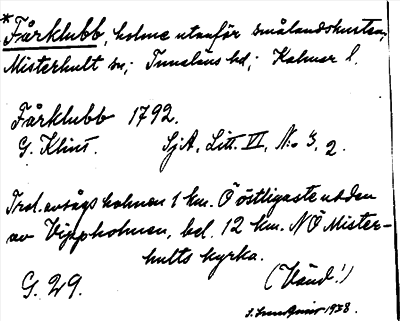 *Fårklubb, holme utanför smålandskusten;
Misterhult sn; Tunaläns hd; Kalmar l.
Fårklubb 1792.
G. Klint. SjA, Litt. VI, N:o 3, 2.
Trol. avsågs holmen 1 km. Ö östligaste udden
av Vippholmen, bel. 12 km. NÖ Mister-
hults kyrka.
(Vänd!)
G. 29.
1938.